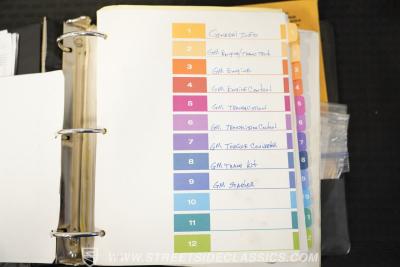 1 General Info
2 GM Engine/Trans Tech
3 GM Engine
4 GM Engine Control
5 GM Transmission
6 GM Transmission Control
7 GM Torque Converter
8 GM Trans Kit
9 GM Starter
10
11
12
WWW.STREETSIDECLASSICS.COM